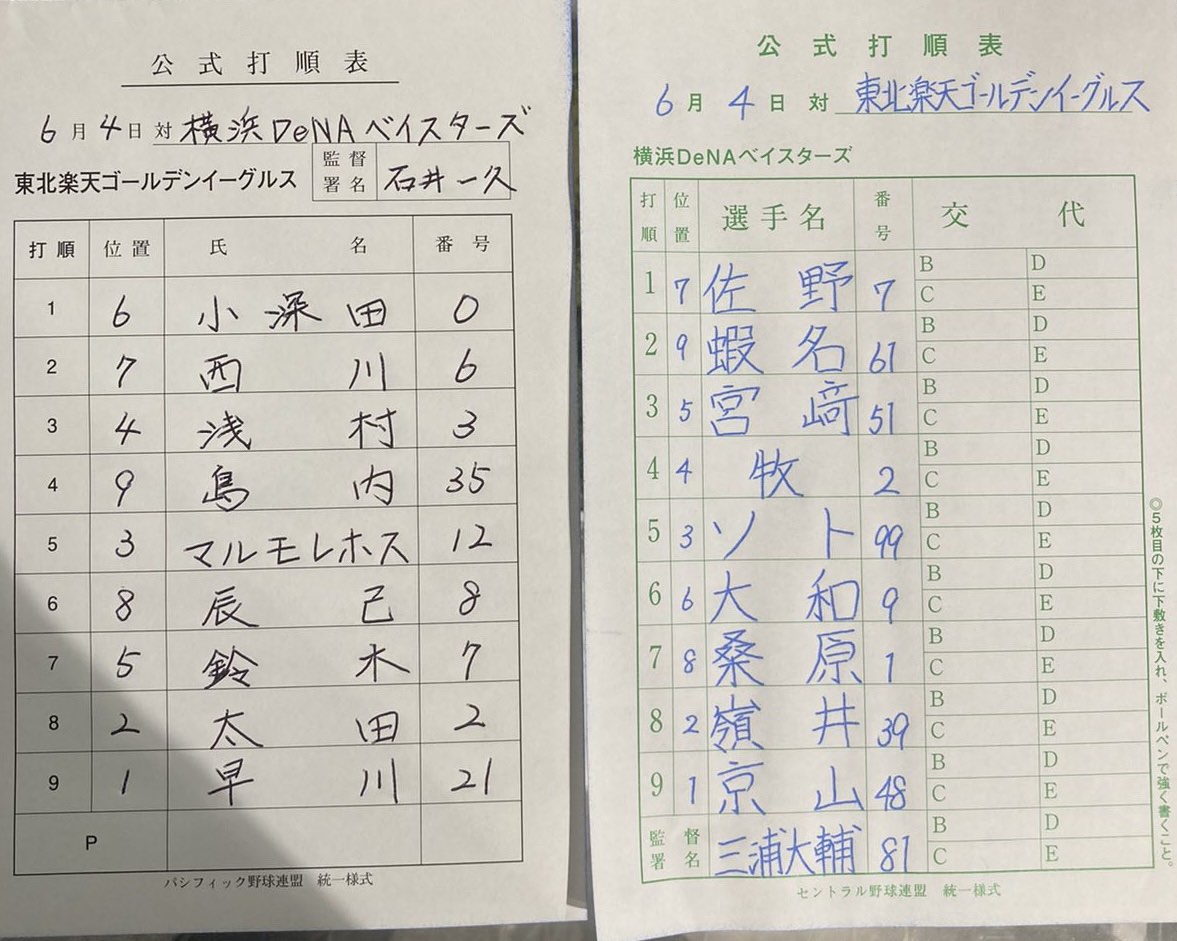 公式打順表
6月4日対 横浜DeNAベイスターズ
東北楽天ゴールデンイーグルス 監督署名 石井一久
打順 位置 氏名 番号
1 6 小深田 0
2 7 西川 6
3 4 浅村 3
4 9 島内 35
5 3 マルモレホス 12
6 8 辰己 8
7 5 鈴木 7
8 2 太田 2
9 1 早川 21
P
パシフィック野球連盟 統一様式
公式打順表
6月4日対 東北楽天ゴールデンイーグルス
横浜DeNAベイスターズ
打順 位置 選手名 番号 交代
1 7 佐野 7 B D
C E
2 9 蝦名 61 B D
C E
3 5 宮﨑 51 B D
C E
4 4 牧 2 B D
C E
5 3 ソト 99 B D
C E
6 6 大和 9 B D
C E
7 8 桑原 1 B D
C E
8 2 嶺井 39 B D
C E
9 1 京山 48 B D
C E
監督署名 三浦大輔 81 B D
C E
セントラル野球連盟 統一様式
◎5枚目の下に下敷きを入れ、ボールペンで強く書くこと。